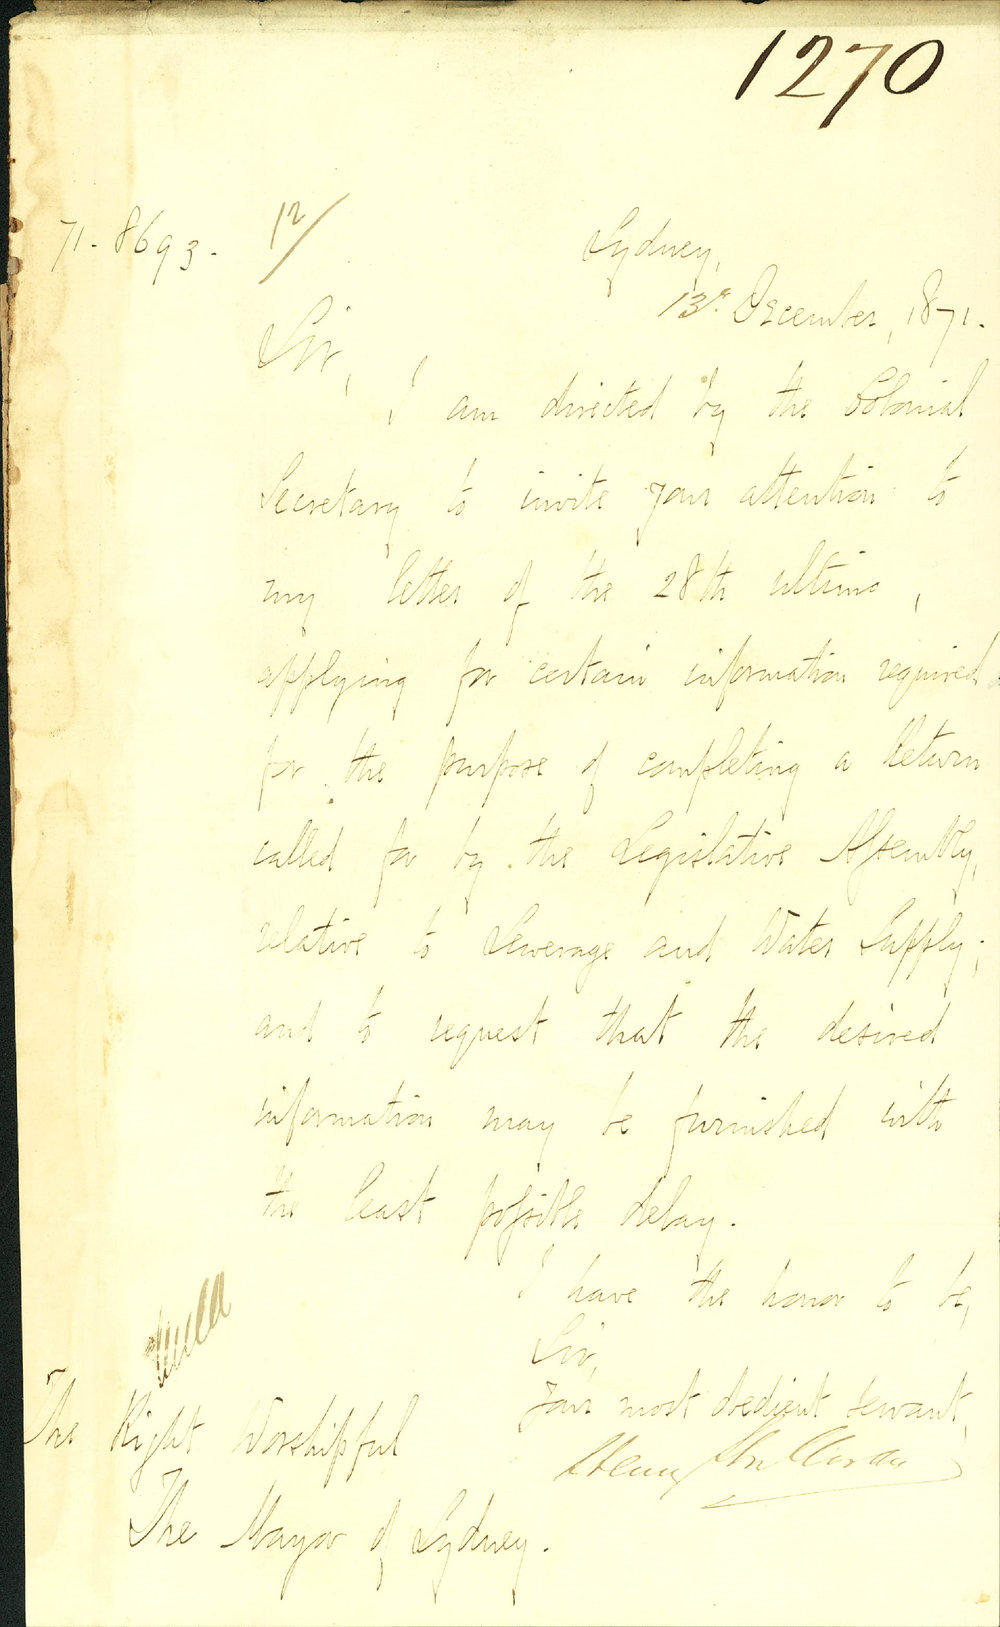 1270
71-8693. 12/
Sydney,
13th December, 1871.
Sir,
I am directed by the Colonial
Secretary to invite your attention to
my letter of the 28th ultimo,
applying for certain information required
for the purpose of completing a Return
called for by the Legislative Assembly,
relative to Sewerage and Water Supply;
and to request that the desired
information may be furnished with
the least possible delay.
I have the honor to be,
Sir,
Your most obedient servant,
Henry Halloran
The Right Worshipful
The Mayor of Sydney.